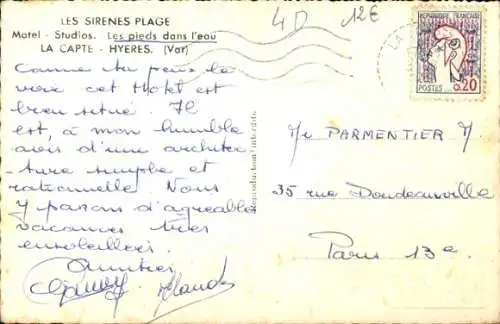 LES SIRENES PLAGE
Motel - Studios. Les pieds dans l'eau
LA CAPTE - HYERES. (Var)
4D 12€
REPUBLIQUE FRANÇAISE
POSTES 0.20
Comme tu peux le
voir cet Hotel est
bien situé. Il
est, à mon humble
avis d'une architec
-ture simple et
rationnelle. Nous
y passons d'agreables
vacances très
ensoleillées.
Amitiés
Reproduction interdite
Mr PARMENTIER
35 rue Doudeauville
Paris 13e